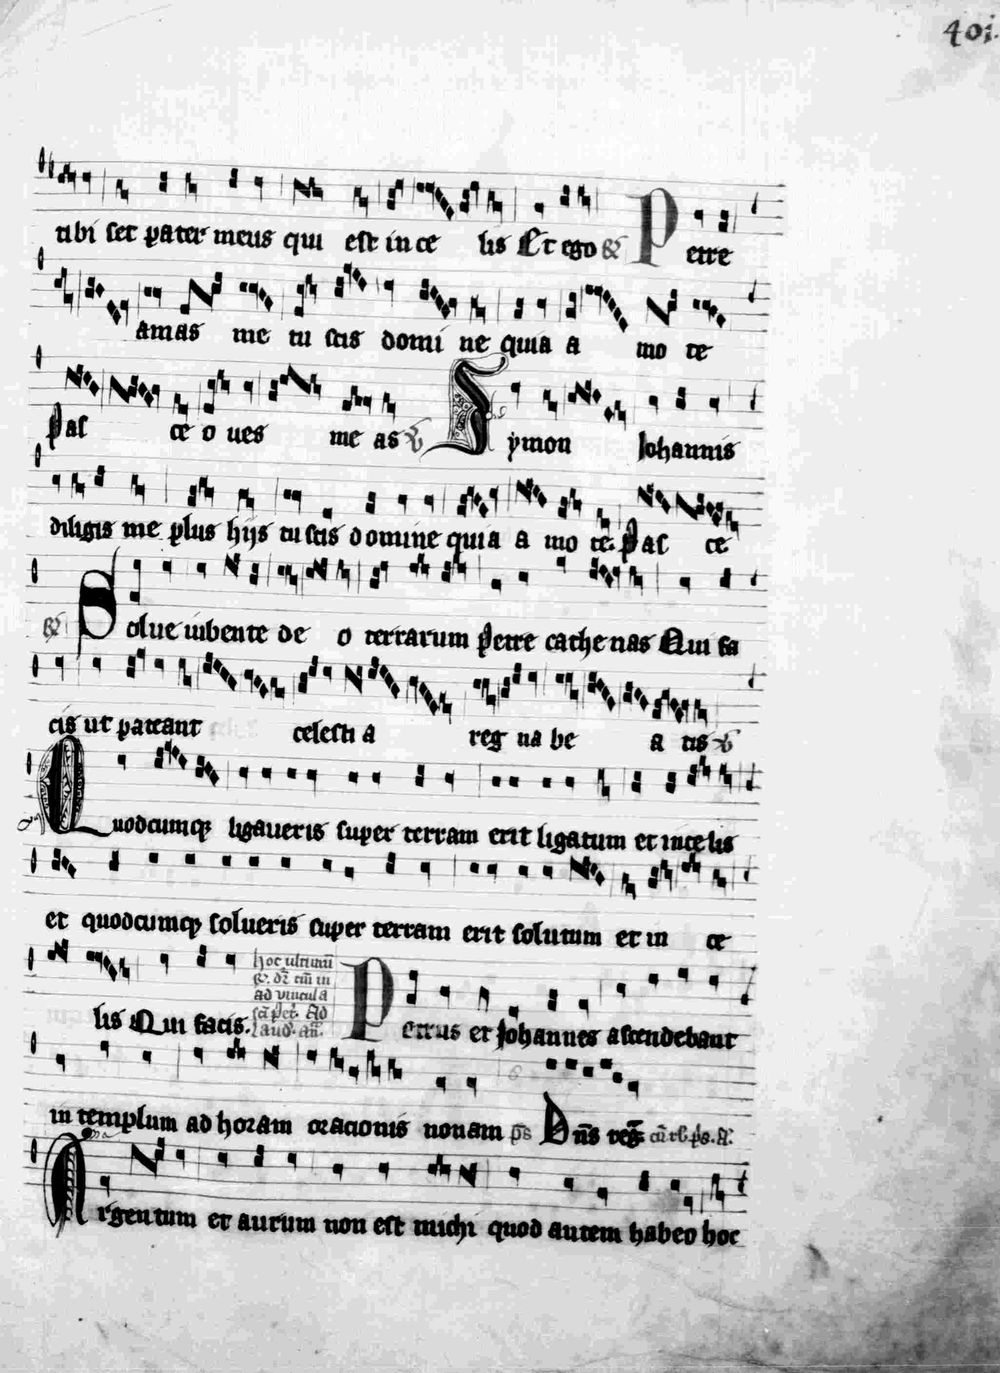 401.
tibi set pater meus qui est in ce lis Et ego Petre
amas me tu scis domi ne quia a mo te
Pas ce o ues me as Symon Johannis
diligis me plus hijs tu scis domine quia a mo te. Pas ce
Solue iubente de o terrarum Petre cathe nas Qui fa
cis ut pateant celesti a reg na be a tis
Quodcumq ligaueris super terram erit ligatum et in ce lis
et quodcumq solueris super terram erit solutum et in ce
lis Qui facis. hoc ultimū
ad vincula
Ad
Petrus et Johannes ascendebant
in templum ad horam oracionis nonam ps Dns reg
Argentum et aurum non est michi quod autem habeo hoc